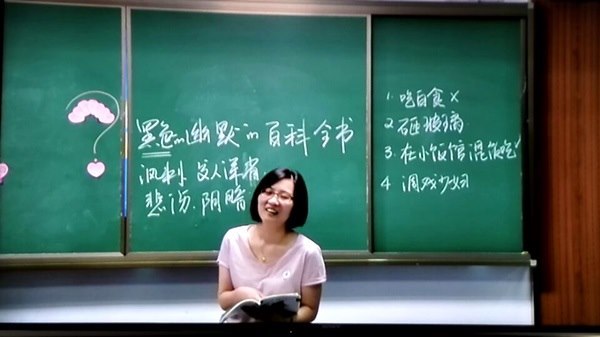 黑色的幽默的百科全书
讽刺 发人深省
悲伤.阴暗
1. 吃白食 ×
2. 砸玻璃
3. 在小饭馆混饭吃 ✓
4 调戏少妇